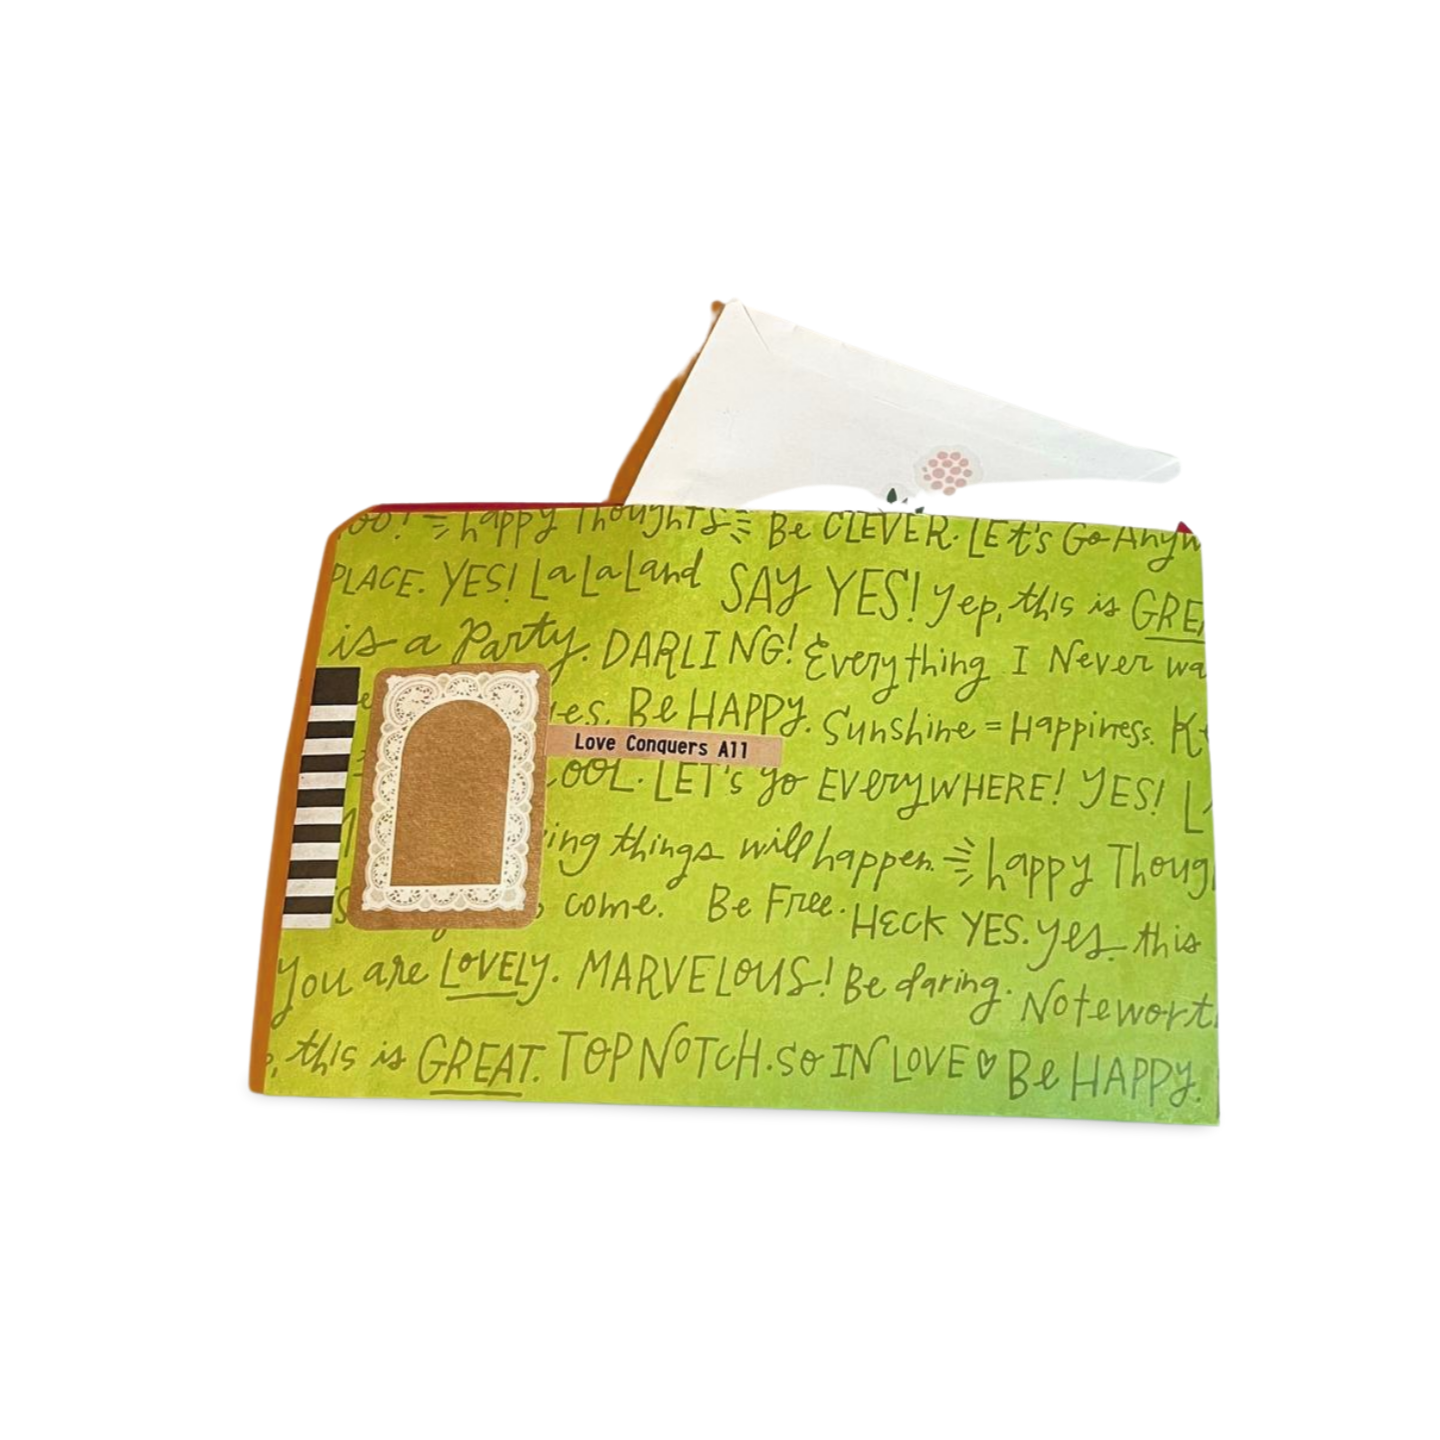 Happy Thoughts Be CLEVER. LET's Go
PLACE. YES! La La Land SAY YES! Yep, this is
is a Party. DARLING! Everything I Never
Be HAPPY. Sunshine = Happiness.
Love Conquers All
LET's go EVERYWHERE! YES!
things will happen. happy
come. Be Free. HECK YES. yes, this
You are LOVELY. MARVELOUS! Be daring.
this is GREAT. TOP NOTCH. so IN LOVE ♡ Be HAPPY.